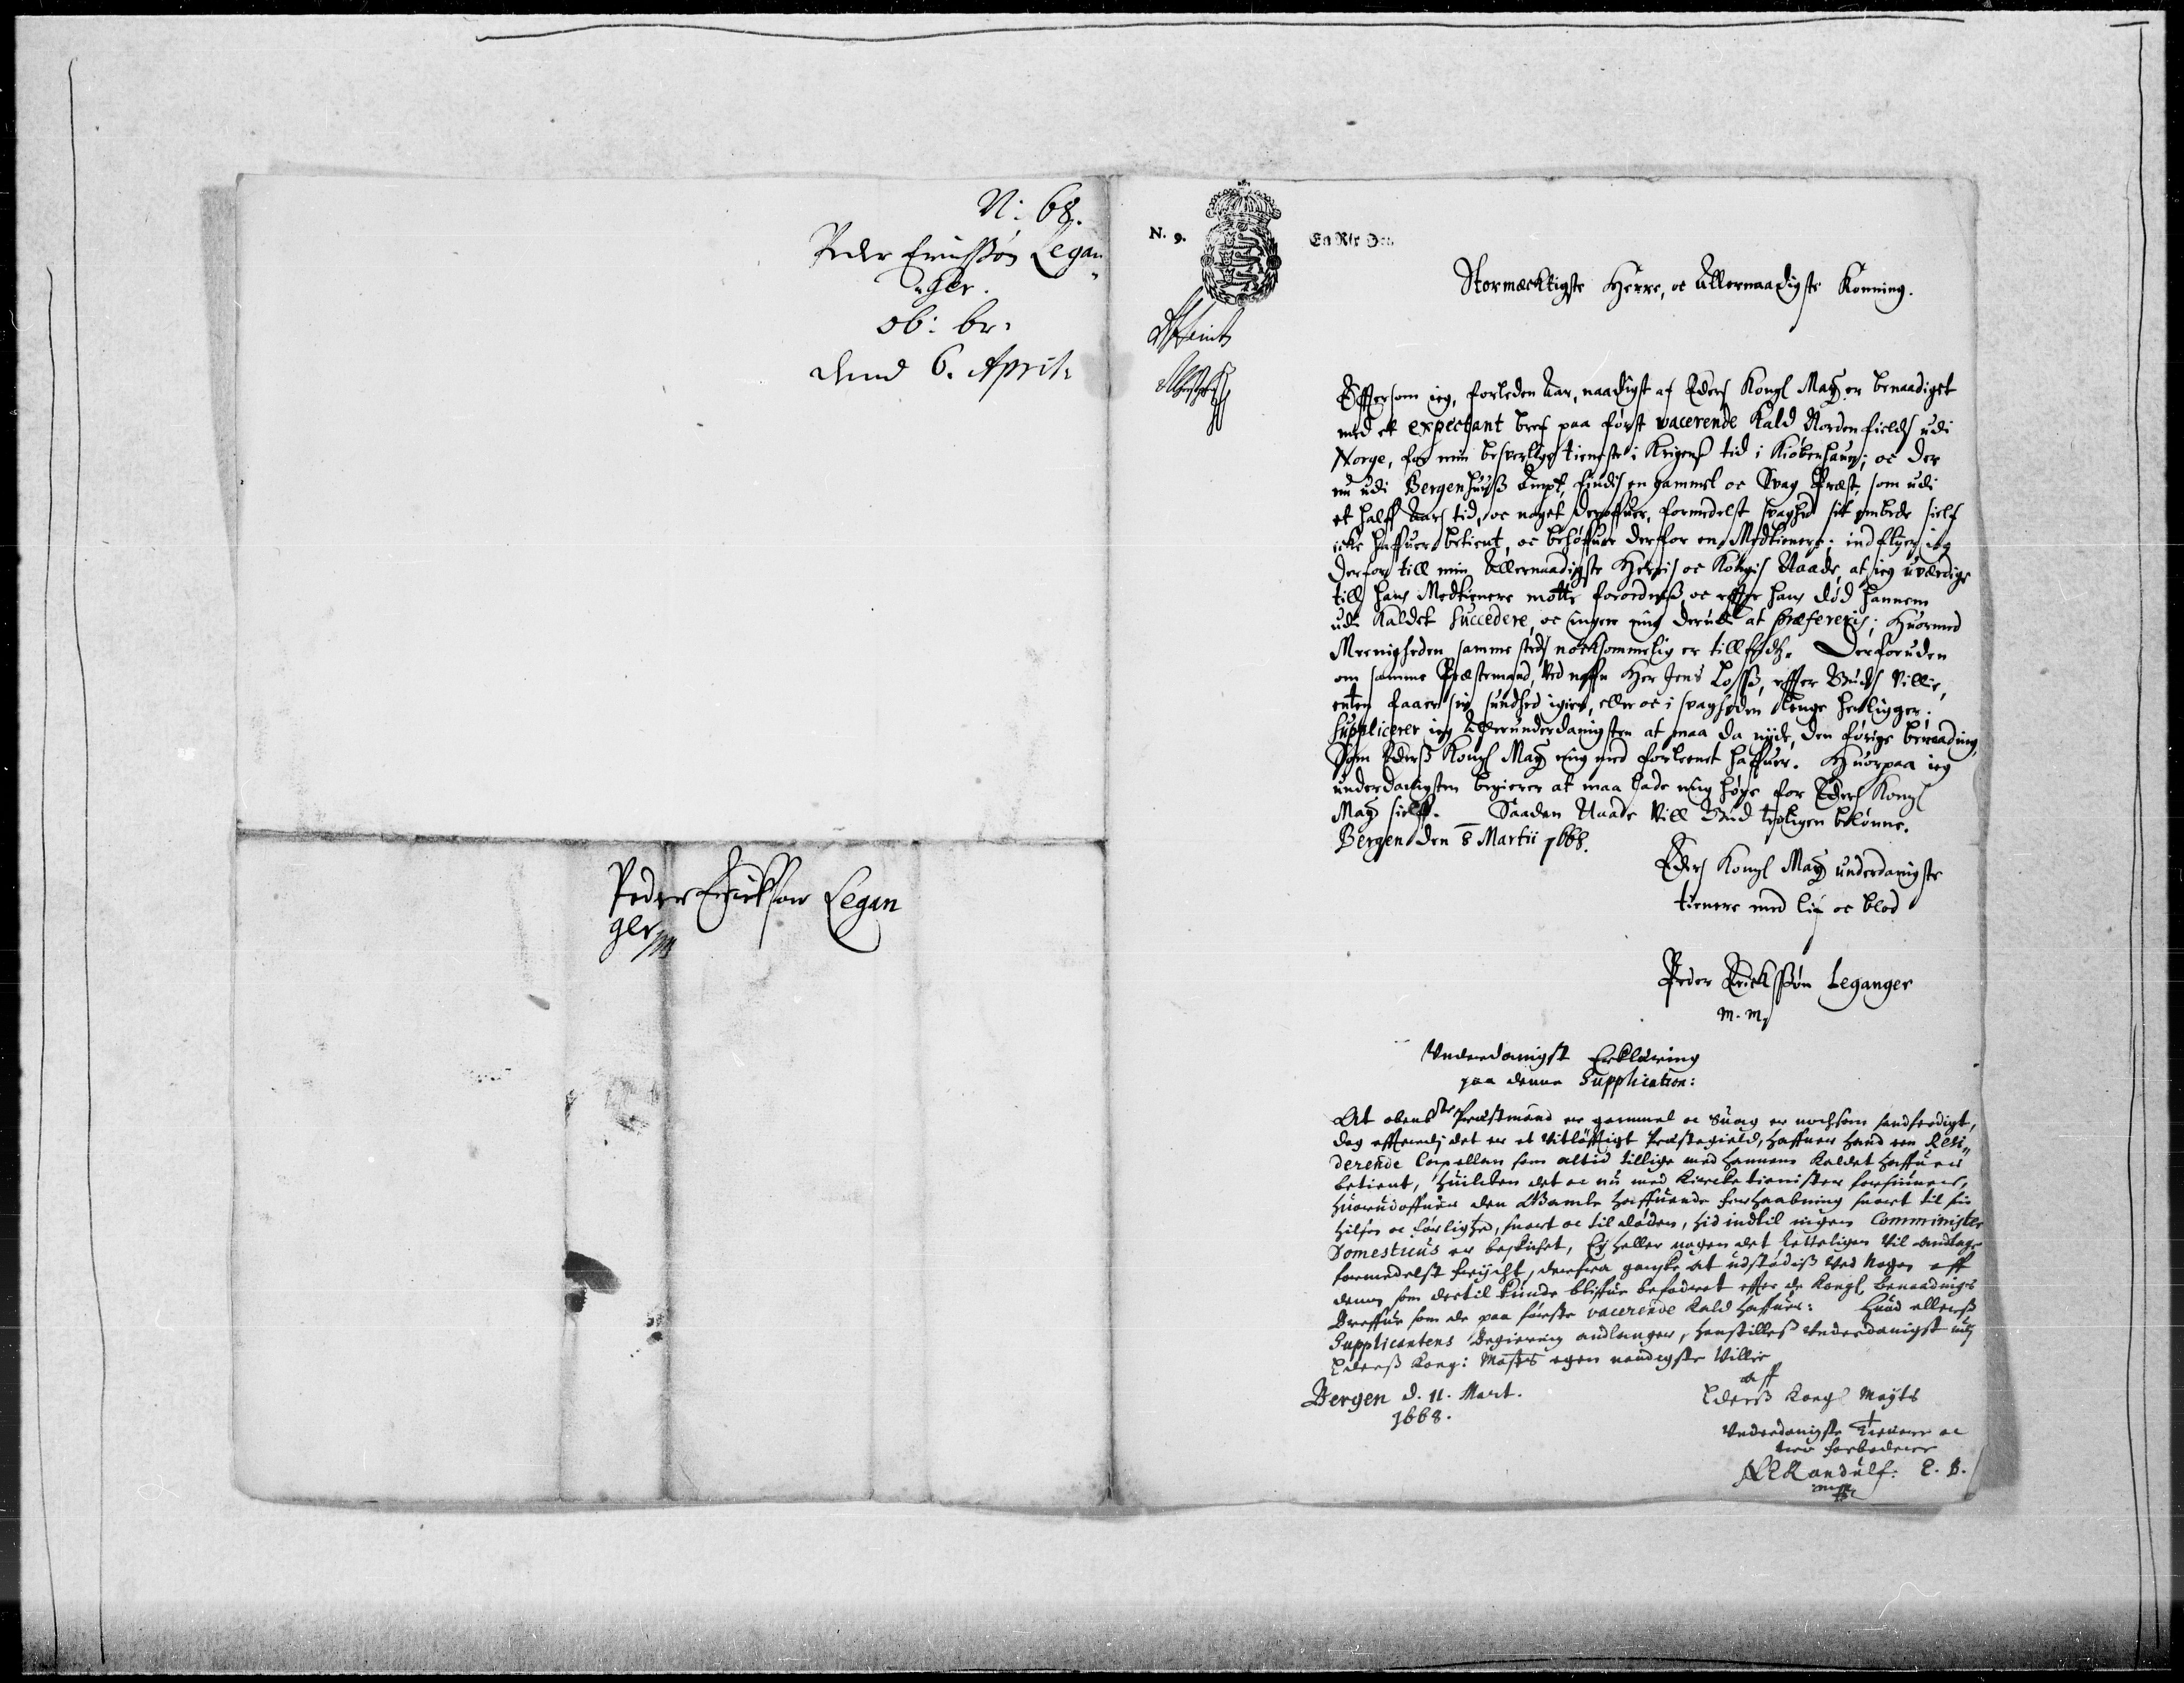 N: 68.
Peder Erichsøn Legan
ger.
ob: br:
dend 6. April:
Peder Erickson Legan
ger
N. 9.
En Rix Ort
Stormæcktigste Herre, oc Allernaadigste Konning.
Effter som ieg, forleden Aar, naadigst af Eders Kongl May. er benaadiget
med et expectant bref paa først vacerende Kald Nordenfields udi
Norge, for min besverlige tieneste i Krigens tid i Kiøbenhaun; oc der
nu udi Bergenhuuß Ampt, findis en gammel oc Svag Præst, som udi
et halff Aars tid, oc noget derofuer, formedelst svaghed sit embede sielf
icke haffuer betient, oc behøffuer derfor en Medtienere; indflyer ieg
derfor till min Allernaadigste Herris oc Kongis Naade, at ieg uværdige
till hans Medtienere motte forordnis, oc effter hans død hannem
udi Kaldet Succedere, oc ingen mig derudi at præfereris; Huormed
Menigheden samme steds nocksommelig er tillfreds. Derforuden
om samme Præstemand, ved nafn Her Jens Losß, effter Guds Villie,
enten faaer sin sundhed igien, eller oc i svagheden lenge henligger;
Supplicerer ieg Allerunderdanigsten at maa da nyde, den førige benaading,
som Eders Kongl May mig med forleent haffuer. Huorpaa ieg
underdanigsten begierer at maa lade mig høre for Eders Kongl
May sielff. Saadan Naade Vill Gud rigeligen belønne.
Bergen den 8 Martii 1668.
Eders Kongl May underdanigste
tienere med lif oc blod
Peder Erickssøn Leganger
m. m.
Underdanigst Erklæring
paa denne Supplication:
At obente Præstmand er gammel oc Suag er nochsom sandferdigt,
dog efftersom det er et Vitløfftigt Præstegield, haffuer hand een Resi
derende Capellan som altid tillige med hannem Kaldet haffuer
betient, huilcken det oc nu med Kircke tienisten forsiuner,
Huorudoffuer den Gamle haffuende forhaabning snart til sin
hilsen oc førlighed, snart oc til døden, hid indtil ingen Comminister
Domesticus er beskichet, Ey heller nogen det Retteligen Vil andtage
formedelst frycht, derfra ganske at udstødis Ved Nogen aff
dennem som dertil kunde bliffue befodret effter de Kongl benaadnings
Breffue som de paa første vacerende Kald haffuer: Huad ellers
Supplicantens Begiering andlanger, henstilles Underdanigst udj
Eders Kong: Mayts egen naadigste Villie
Bergen d. 11. Mart.
1668.
aff
Eders Kongl Mayts
Underdanigste Tienere oc
troe forbedere
N E Randulf. E. B.
mpp